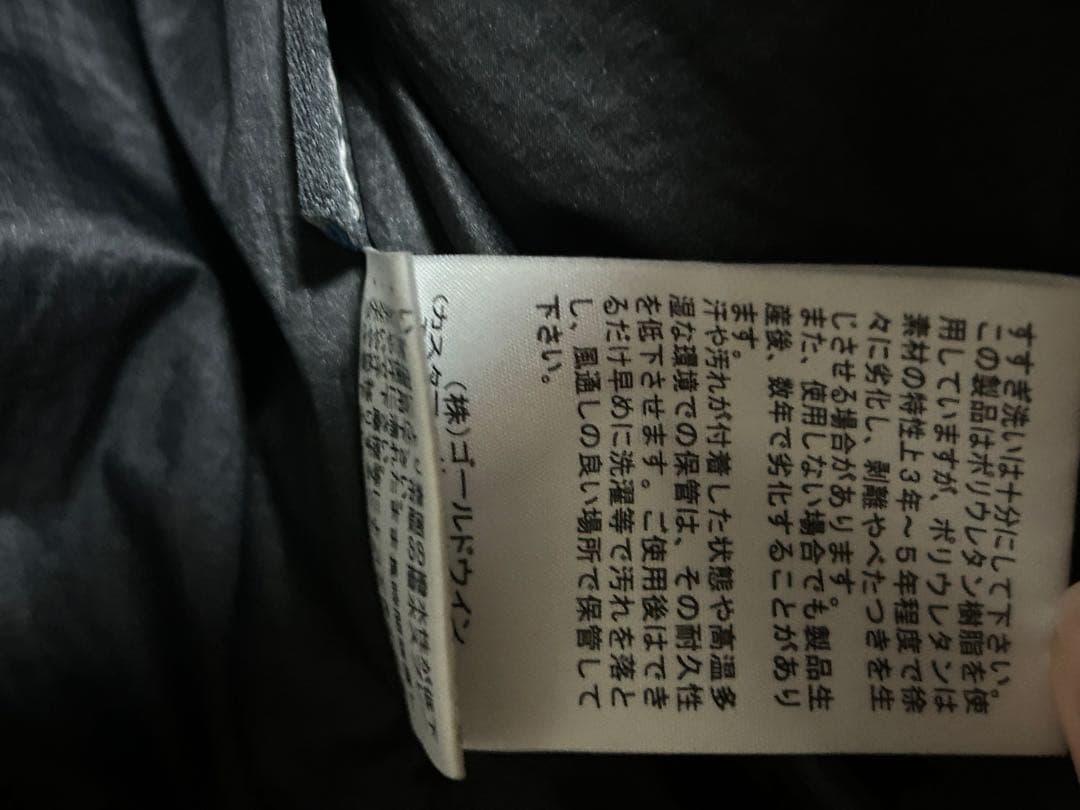 すすぎ洗いは十分にして下さい。
この製品はポリウレタン樹脂を使
用していますが、ポリウレタンは
素材の特性上3年～5年程度で徐
々に劣化し、剥離やべたつきを生
じさせる場合があります。
また、使用しない場合でも製品生
産後、数年で劣化することがあり
ます。
汗や汚れが付着した状態や高温多
湿な環境での保管は、その耐久性
を低下させます。ご使用後はでき
るだけ早めに洗濯等で汚れを落と
し、風通しの良い場所で保管して
下さい。
(株)ゴールドウイン
(カスタ